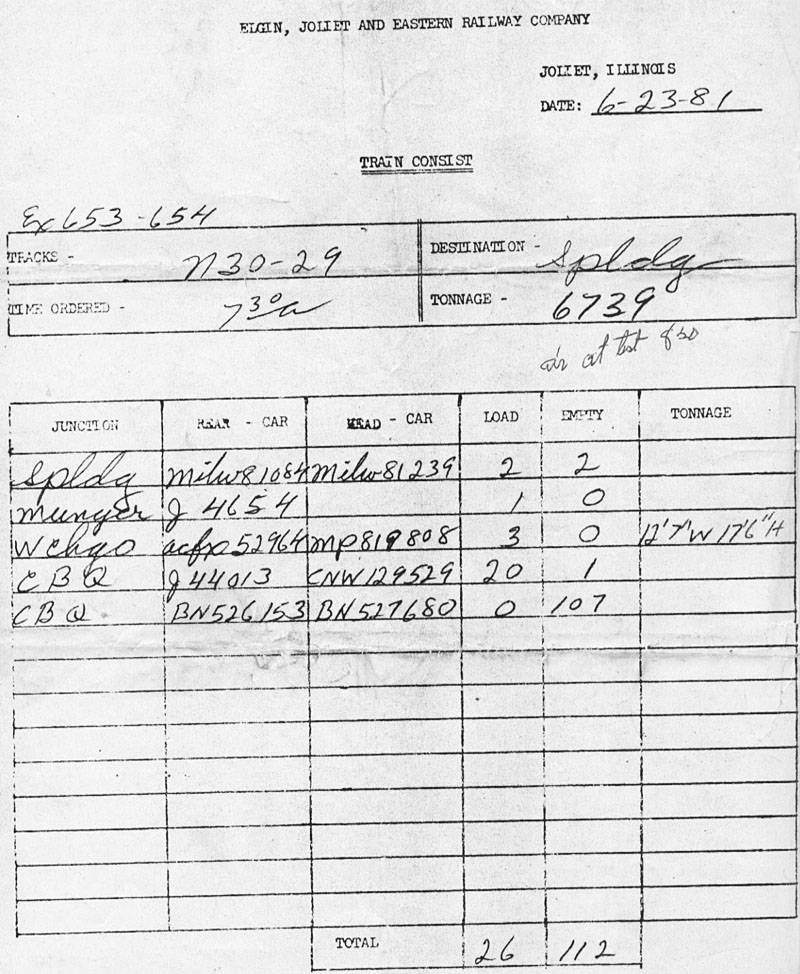 ELGIN, JOLIET AND EASTERN RAILWAY COMPANY
JOLIET, ILLINOIS
DATE: 6-23-81
TRAIN CONSIST
Ex 653-654
TRACKS - N30-29
DESTINATION - Spldg
TIME ORDERED - 7 30 a
TONNAGE - 6739
air at tst
JUNCTION REAR - CAR HEAD - CAR LOAD EMPTY TONNAGE
Spldg milw81084 milw81239 2 2
munger J 4654 1 0
W chgo acfx52964 MP819808 3 0 12'7"W 17'6"H
CBQ J 44013 CNW129529 20 1
CBQ BN526153 BN527680 0 107
TOTAL 26 112